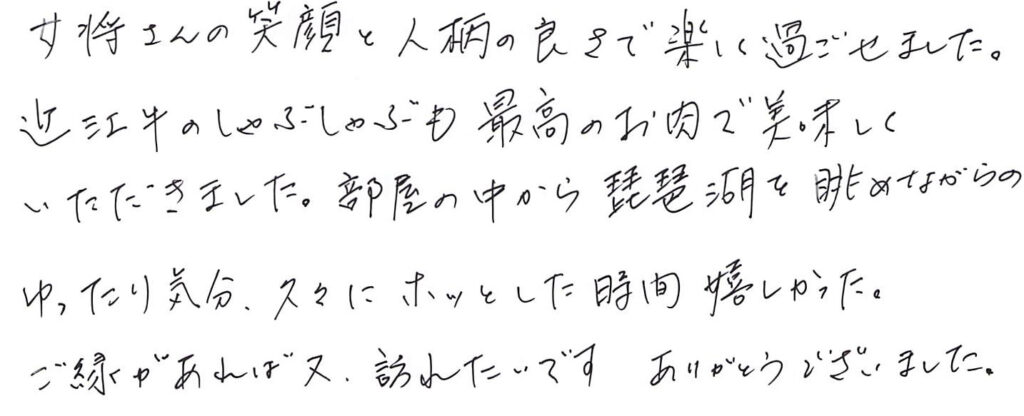 女将さんの笑顔と人柄の良さで楽しく過ごせました。
近江牛のしゃぶしゃぶも最高のお肉で美味しく
いただきました。部屋の中から琵琶湖を眺めながらの
ゆったり気分、久々にホッとした時間嬉しかった。
ご縁があれば又、訪れたいです ありがとうございました。